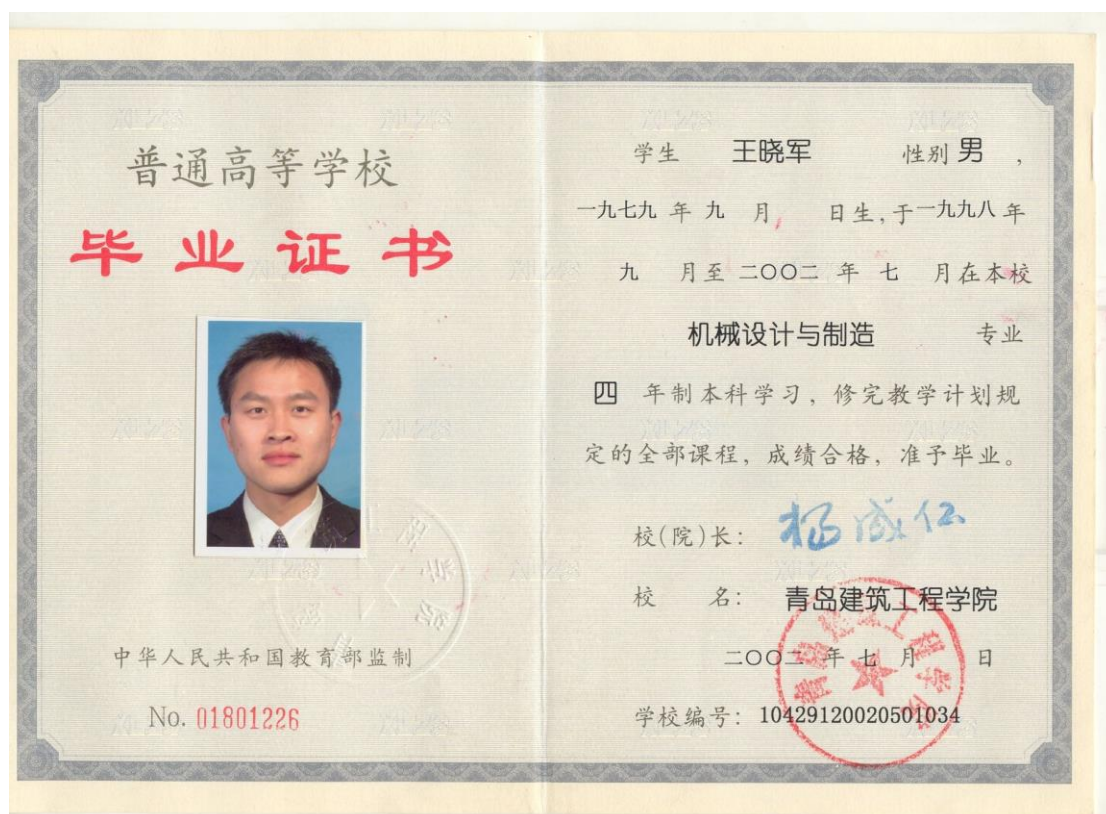 普通高等学校
毕业证书
中华人民共和国教育部监制
No. 01801226
学生 王晓军 性别 男 ,
一九七九 年 九 月 日生,于 一九九八 年
九 月至 二〇〇二 年 七 月在本校
机械设计与制造 专业
四 年制本科学习,修完教学计划规
定的全部课程,成绩合格,准予毕业。
校(院)长:
校 名: 青岛建筑工程学院
二〇〇二 年 七 月 日
学校编号: 10429120020501034
青岛建筑工程学院